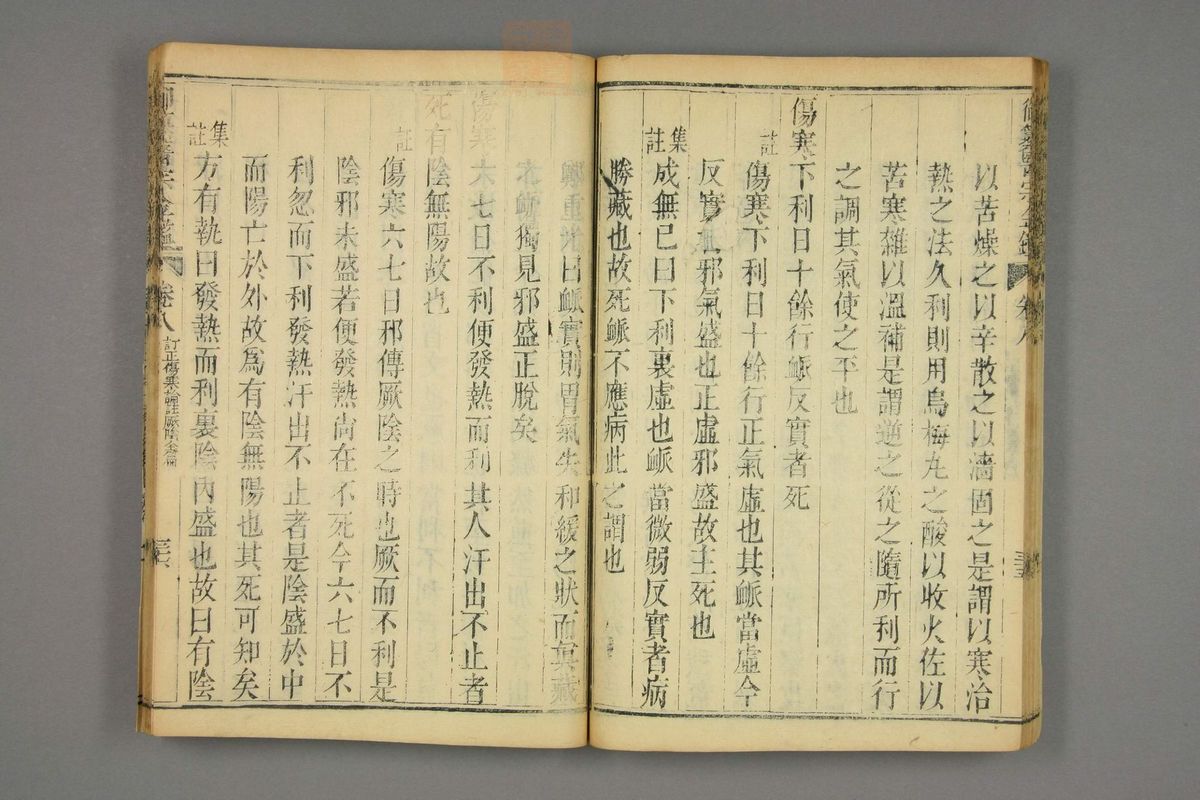 以苦燥之以辛散之以濇固之是謂以寒治
熱之法久利則用烏梅丸之酸以收火佐以
苦寒雜以溫補是謂逆之從之隨所利而行
之調其氣使之平也
傷寒下利日十餘行脈反實者死
註
傷寒下利日十餘行正氣虛也其脈當虛今
反實邪氣盛也正虛邪盛故主死也
集註
成無已曰下利裏虛也脈當微弱反實者病
勝藏也故死脈不應病此之謂也
鄭重光曰脈實則胃氣失和緩之狀而眞藏
之脈獨見邪盛正脫矣
傷寒六七日不利便發熱而利其人汗出不止者
死有陰無陽故也
註
傷寒六七日邪傳厥陰之時也厥而不利是
陰邪未盛若便發熱尚在不死今六七日不
利忽而下利發熱汗出不止者是陰盛於中
而陽亡於外故爲有陰無陽也其死可知矣
集註
方有執曰發熱而利裏陰內盛也故曰有陰
御纂醫宗金鑑
卷八
訂正傷寒論註厥陰全篇
三六